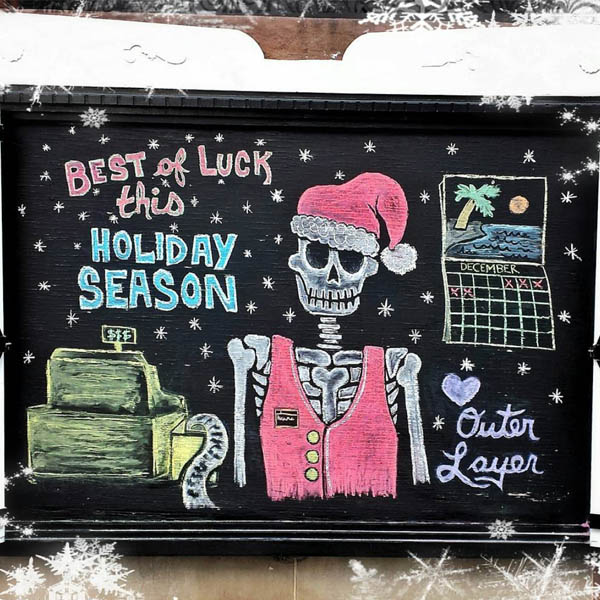 BEST of LUCK
this
HOLIDAY
SEASON
$$$
DECEMBER
Outer
Layer